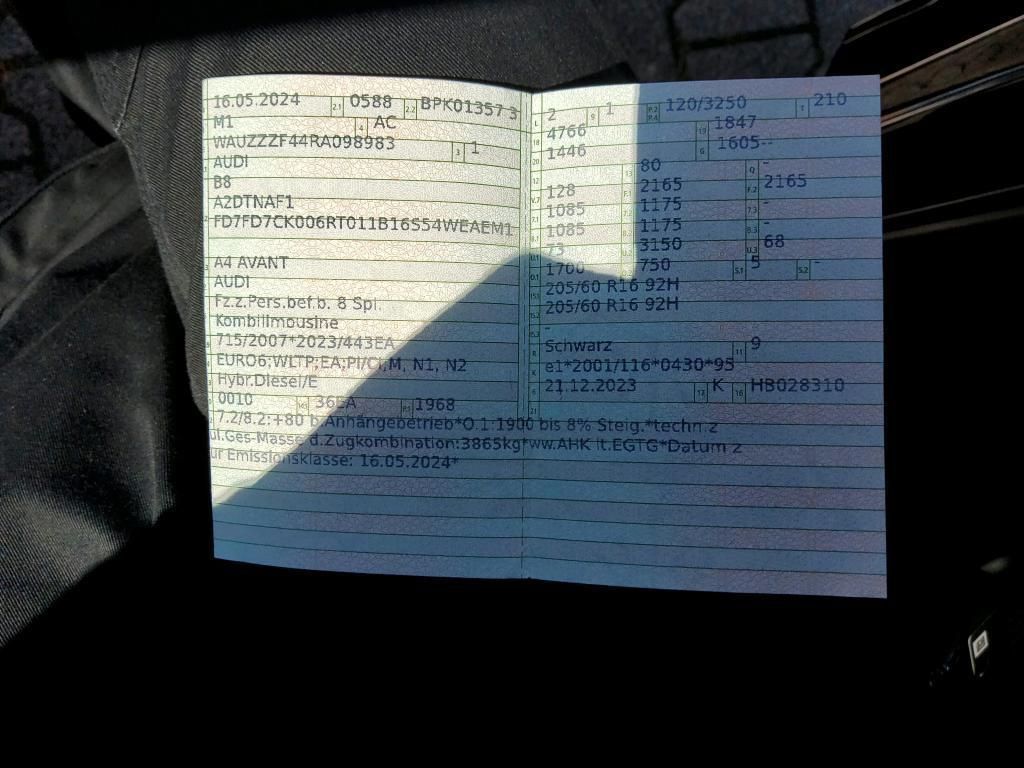 16.05.2024 2.1 0588 2.2 BPK01357 3
M1 4 AC
WAUZZZF44RA098983 3 1
AUDI
B8
A2DTNAF1
FD7FD7CK006RT011B16S54WEAEM1
A4 AVANT
AUDI
Fz.z.Pers.bef.b. 8 Spl.
Kombilimousine
715/2007*2023/443EA
EURO6;WLTP;EA;PI/CI,M, N1, N2
Hybr.Diesel/E
0010 14.1 36EA P.1 1968
7.2/8.2:+80 b.Anhängebetrieb*O.1:1900 bis 8% Steig.*techn.z
ul.Ges-Masse d.Zugkombination:3865kg*ww.AHK lt.EGTG*Datum z
ur Emissionsklasse: 16.05.2024*
L 2 9 1 P.2 P.4 120/3250 T 210
18 4766 19 1847
20 1446 G 1605--
12 13 80 Q -
V.7 128 F.1 2165 F.2 2165
7.1 1085 7.2 1175 7.3 -
8.1 1085 8.2 1175 8.3 -
U.1 73 U.2 3150 U.3 68
O.1 1700 O.2 750 S.1 5 S.2 -
15.1 205/60 R16 92H
15.2 205/60 R16 92H
15.3 -
R Schwarz 11 9
K e1*2001/116*0430*95
6 21.12.2023 17 K 16 HB028310
21